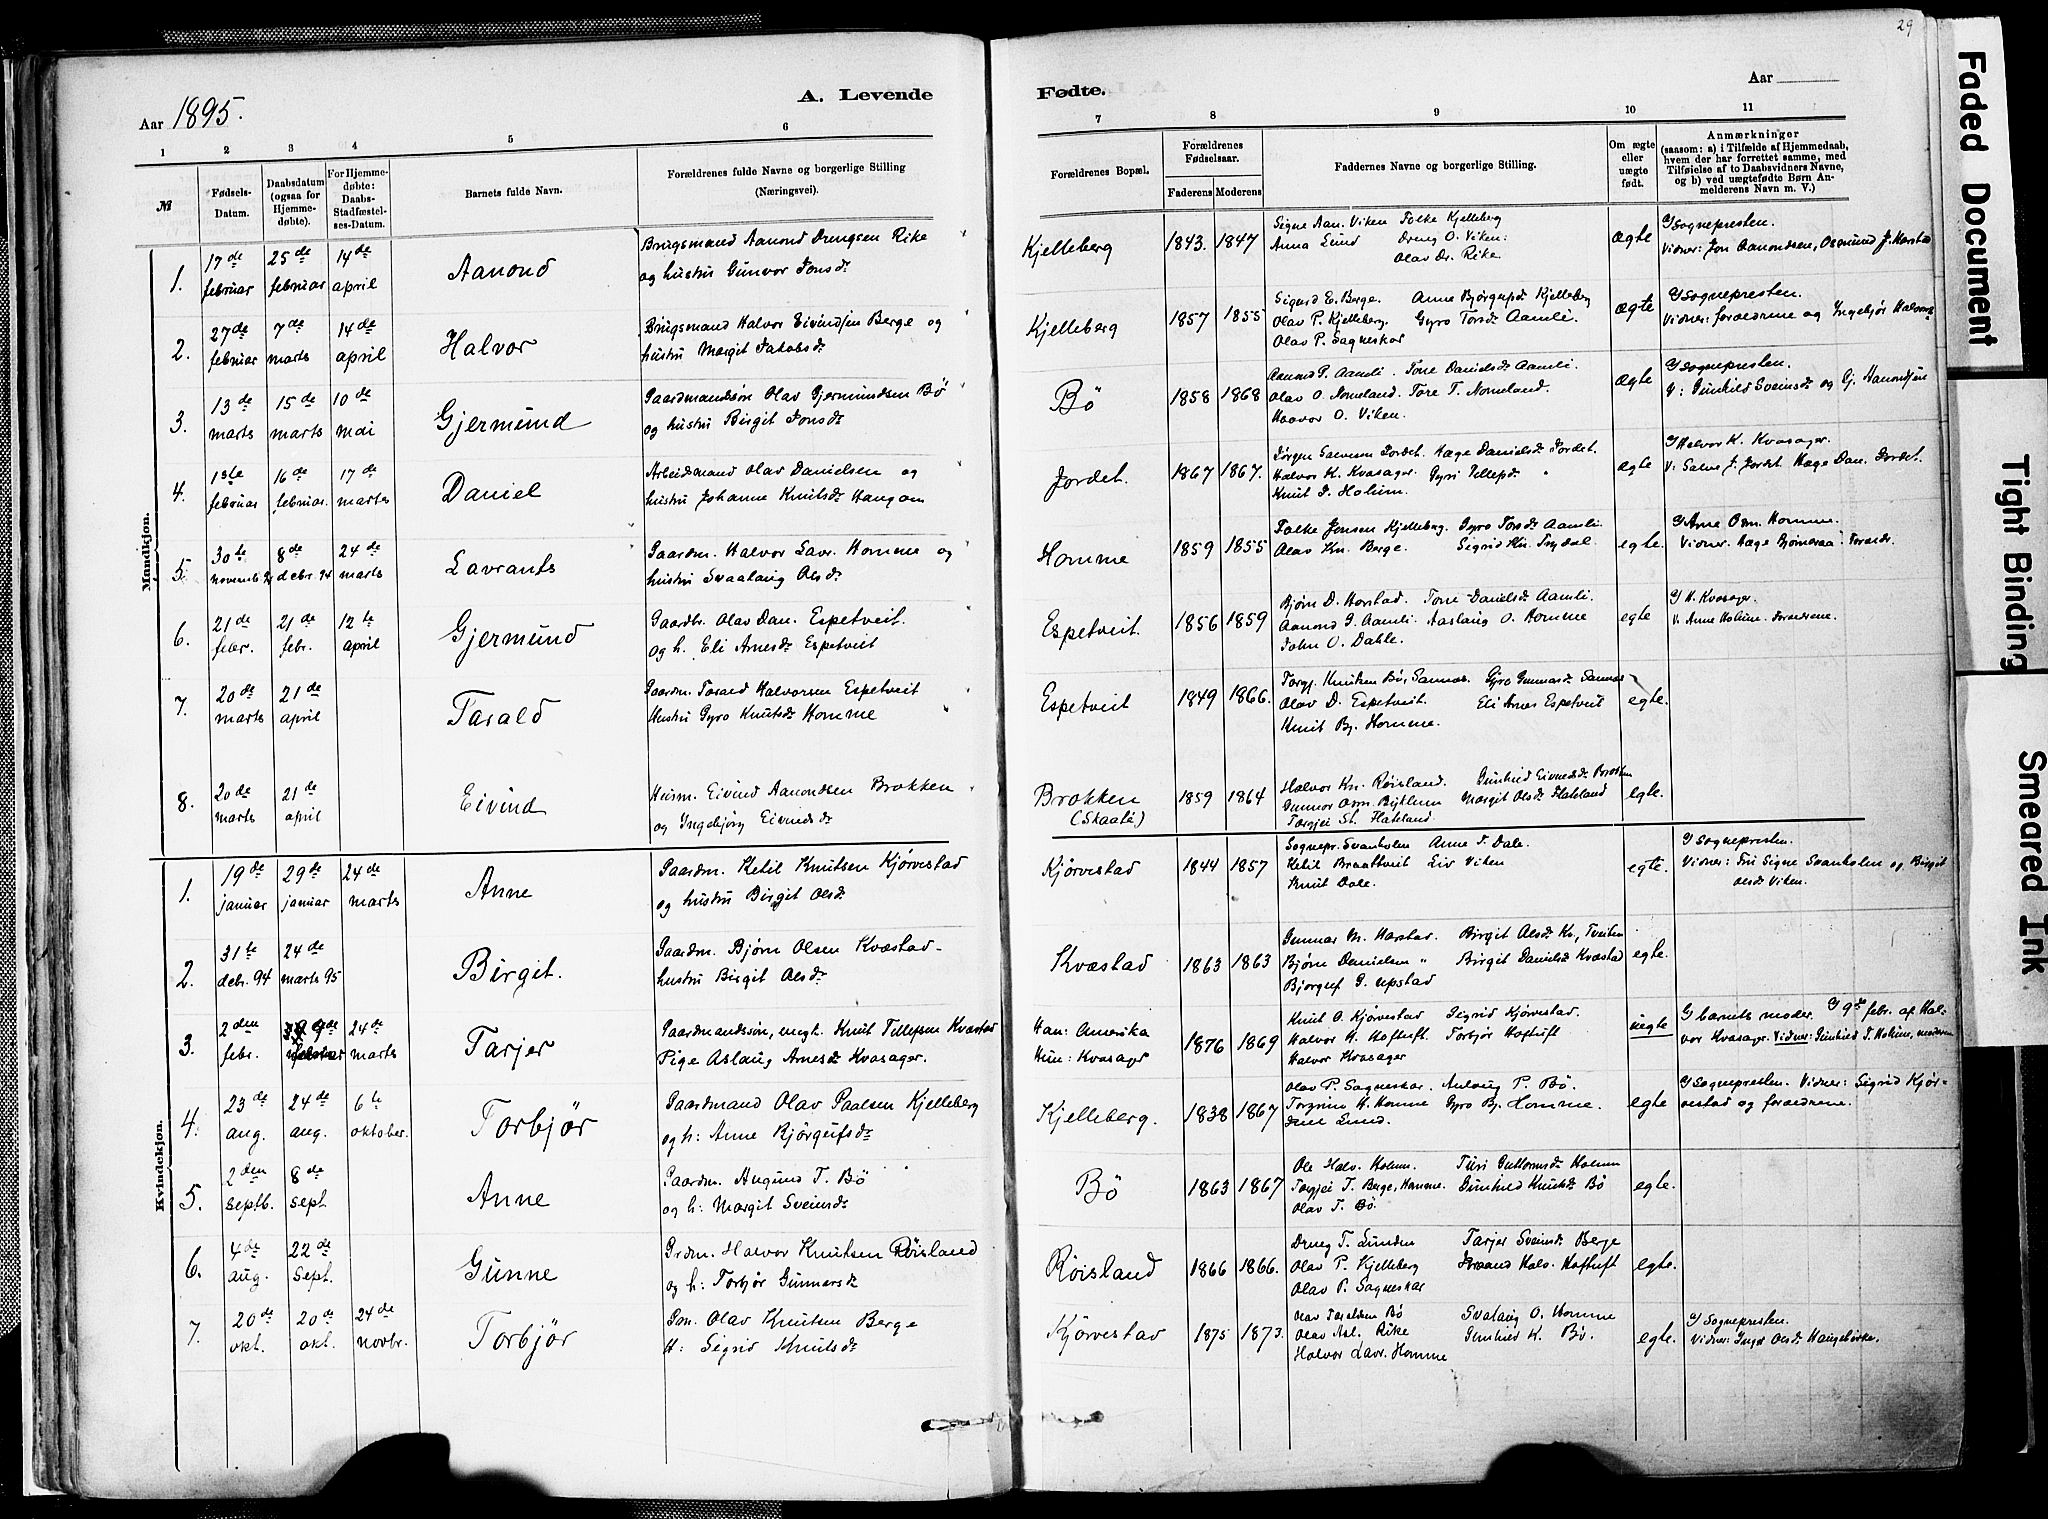 29
Faded Document
Tight Binding
Smeared Ink
Aar 1895.
A. Levende
Fødte.
Aar
1 2 3 4 5 6 7 8 9 10 11
№
Fødsels-
Datum.
Daabsdatum
(ogsaa for
Hjemme-
døbte).
For Hjemme-
døbte:
Daabs-
Stadfæstel-
ses-Datum.
Barnets fulde Navn.
Forældrenes fulde Navne og borgerlige Stilling
(Næringsvei).
Forældrenes Bopæl.
Forældrenes
Fødselsaar.
Faderens Moderens
Faddernes Navne og borgerlige Stilling.
Om ægte
eller
uægte
født.
Anmærkninger
(saasom: a) i Tilfælde af Hjemmedaab,
hvem der har forrettet samme, med
Tilføielse af to Daabsvidners Navne,
og b) ved uægtefødte Børn An-
melderens Navn m. V.)
Mandkjøn.
1. 17de februar 25de februar 14de april Aanond
Brugsmand Aanond Drengsen Rike
og hustru Gunvor Jonsdr
Kjelleberg 1843. 1847
Signe Aan. Viken Folke Kjelleberg
Anna Lund Dreng O. Viken.
Olav Dr. Rike
ægte
Sognepresten.
Vidner: Jon Aanondsen, Osmund J. Harstad
2. 27de februar 7de marts 14de april Halvor
Brugsmand Halvor Eivindsen Berge og
hustru Margit Jakobsdr
Kjelleberg 1857 1855
Sigurd E. Berge. Anne Bjørgufsdr Kjelleberg
Olav P. Kjelleberg. Gyro Torsdr Aamli.
Olav P. Sagneskar
ægte
Sognepresten.
Vidner: forædrene og Ingebjør Halvorsdr
3. 13de marts 15de marts 10de mai Gjermund
Gaardmandsøn Olav Gjermundsen Bö
og hustru Birgit Jonsdr
Bö 1858 1868
Aanond P. Aamli. Tone Danielsdr Aamli.
Olav O. Nomeland. Tore T. Nomeland.
Haavor O. Viken.
ægte
Sognepresten.
V: Gunhild Sveinsdr og Gj. Aanondsen
4. 1ste februar 16de februar. 17de marts Daniel
Arbeidsmand Olav Danielsen og
hustru Johanne Knutsdr Haugom
Jordet. 1867 1867.
Jørgen Salvesen Jordet. Hæge Danielsdr Jordet.
Halvor K. Kvasager. Gyri Tellefsdr "
Knut J. Holum.
ægte
Halvor K. Kvasager.
V: Salve J. Jordet Hæge Dan. Jordet.
5. 30te novemb. 94 8de debr. 94 24de marts Lavrants
Gaardm. Halvor Lavr. Homme og
hustru Svaalaug Olsdr
Homme 1859 1855
Folke Jonsen Kjelleberg. Gyro Torsdr Aamli.
Olav Kn. Berge. Sigrid Kn.
egte
Arne Osm. Homme.
Vidner. Aage Bjørnaraa
6. 21de febr. 21de febr. 12te april Gjermund
Gaardbr. Olav Dan. Espetveit.
og h. Eli Arnesdr Espetveit
Espetveit. 1856 1859
Bjørn D. Harstad. Tone Danielsdr Aamli.
Aanond G. Aamli. Aaslaug O. Homme
John O. Dahle.
egte
K. Kvasager.
V. Anne Holum. Forædrene.
7. 20de marts 21de april Tarald
Gaardm. Tarald Halvorsen Espetveit
Hustru Gyro Knutsdr Homme
Espetveit 1849 1866.
Torgj. Knutsen Bö, Sannes. Gyro Gunnarsdr Sannes
Olav D. Espetveit. Eli Arnes Espetveit
Knut Bj. Homme.
egte.
8. 20de marts 21de april Eivind
Husm. Eivind Aanondsen Brokken
og Ingebjörg Eivindsdr
Brokken (Skaate) 1859 1864
Halvor Kn. Røisland. Gunhild Eivindsdr Brokken
Gunnar Osm. Bjklum Margit Olsdr Hateland
Torgjei St. Hateland
egte.
Kvindekjøn.
1. 19de januar 29de januar 24de marts Anne
Gaardm. Ketil Knutsen Kjørvestad
og hustru Birgit Olsdr
Kjørvestad 1844 1857
Sognepr. Svanholm Anne T. Dale.
Ketil Braattveit Liv Viken
Knut Dale.
egte.
Sognepresten.
Vidner: Fru Signe Svanholm og Birgit
Olsdr Viken.
2. 31te debr. 94 24de marts 95 Birgit.
Gaardm. Bjørn Olsen Kvæstad-
hustru Birgit Olsdr
Kvæstad 1863 1863
Gunnar M. Harstad. Birgit Olsdr Kv., Tveiten
Bjørn Danielsen " Birgit Danielsdr Kvæstad
Bjorguf G. Upstad
egte.
3. 2den febr. 9de 24de marts Tarjer
Gaardmandssøn, ungk. Knut Tellefsen Kvæstad
Pige Aslaug Arnesdr Kvasager.
Han: Amerika
Hun: Kvasager 1876 1869
Knut O. Kjørvestad Sigrid Kjørvestad.
Halvor K. Hoftuft. Torbjør Hoftuft
Halvor Kvasager
uegte
barnets moder. 9de febr. af Hal-
vor Kvasager. Vidner: Gunhild T. Holum, moderen
4. 23de aug. 24de aug. 6te oktober. Torbjør
Gaardmand Olav Paalsen Kjelleberg
og h: Anne Bjørgufsdr
Kjelleberg. 1838 1867
Olav P. Sagneskar. Aslaug P. Bö.
Torgrim H. Homme Gyro Bj. Homme.
Lund.
egte
Sognepresten. Vidner: Sigrid Kjør-
vestad og foræedrene.
5. 2den septb. 8de sept Anne
Gaardm. Augund T. Bö
og h: Margit Sveinsdr
Bö 1863 1867
Ole Halv. Holum. Turi Guttormsdr Holum
Torgjei T. Berge, Homme. Gunhild Knutsdr Bö
Olav T. Bö.
egte.
6. 4de aug. 22de sept. Gunne
Grdm. Halvor Knutsen Røisland
og h: Torbjør Gunnarsdr
Røisland 1866 1866.
Dreng T. Lunden Tarjer Sveinsdr Berge
Olav P. Kjelleberg Halv. Hoftuft
Olav P. Sagneskar
egte.
7. 20de okt. 20de okt. 24de novbr. Torbjør
Olav Knutsen Berge
H: Sigrid Knutsdr
Kjørvestad 1875 1873.
Olav Taraldsen Bö Svalaug O. Homme
Olav Asl. Rike Gunhild K. Bö.
Halvor Lavr. Homme
egte.
Sognepresten.
Vidner: Inger Olsdr